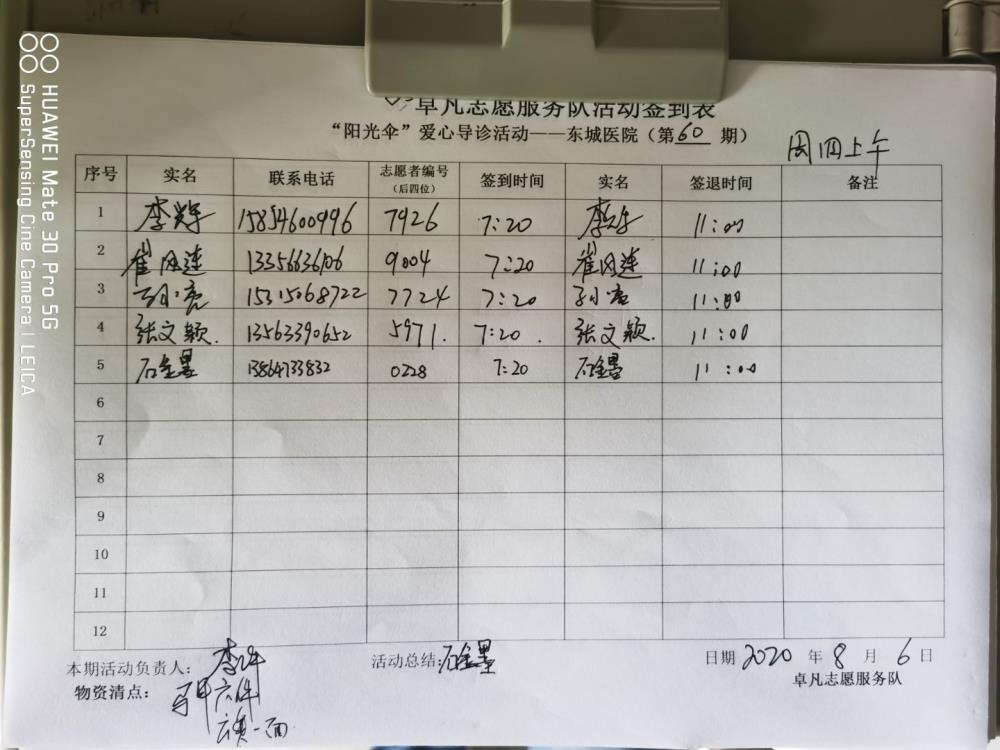 卓凡志愿服务队活动签到表
“阳光伞”爱心导诊活动——东城医院（第60期）
周四上午
序号 实名 联系电话 志愿者编号（后四位） 签到时间 实名 签退时间 备注
1 李 15854600996 7926 7:20 李 11:00
2 崔风莲 13356636106 9004 7:20 崔风莲 11:00
3 孙小亮 15315068722 7724 7:20 孙小亮 11:00
4 张文颖. 13563390652 5971. 7:20. 张文颖. 11:00
5 石金墨 13864733832 0228 7:20 石金墨 11:00
6
7
8
9
10
11
12
本期活动负责人： 李 活动总结:石金墨 日期 2020 年 8 月 6 日
物资清点： 马甲六件 卓凡志愿服务队
一面
HUAWEI Mate 30 Pro 5G
SuperSensing Cine Camera | LEICA